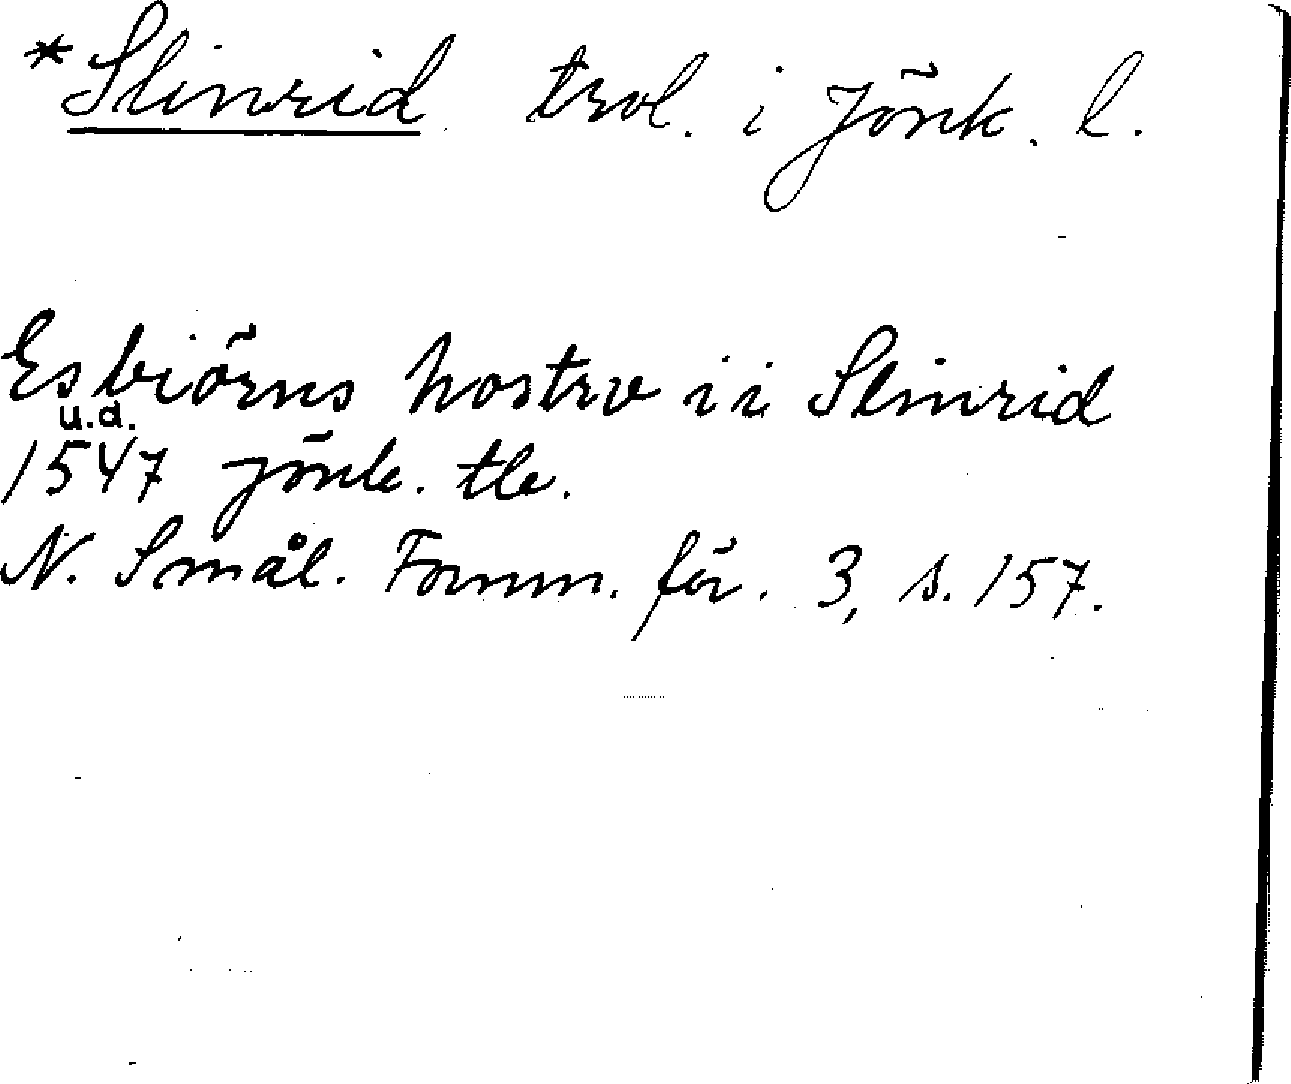 *Slinrid trol. i Jönk. l.
Esbiörns hostrv ii Slinrid
u.a.
1547 Jönk. tb.
N. Smål. Fornm. för. 3, s. 157.